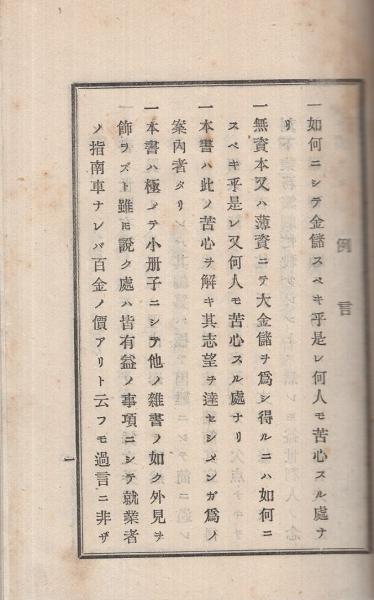 例言
一如何ニシテ金儲スベキ乎是レ何人モ苦心スル處ナ
リ
一無資本又ハ薄資ニテ大金儲ヲ爲シ得ルニハ如何ニ
スベキ乎是レ又何人モ苦心スル處ナリ
一本書ハ此ノ苦心ヲ解キ其志望ヲ達セシメンガ爲ノ
案內者タリ
一本書ハ極メテ小册子ニシテ他ノ雜書ノ如ク外見ヲ
飾ラズト雖モ說ク處ハ皆有益ノ事項ニシテ就業者
ノ指南車ナレバ百金ノ價アリト云フモ過言ニ非ザ
一